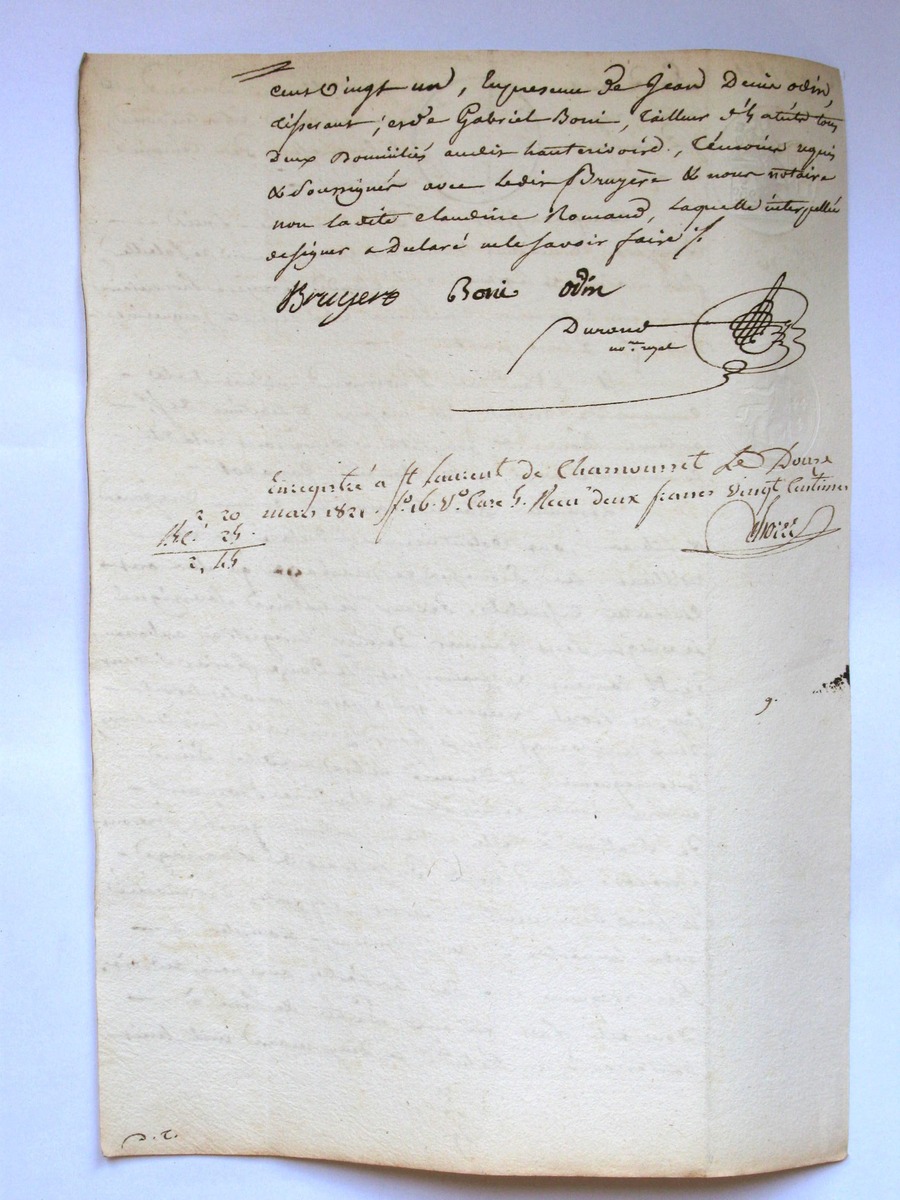 cent vingt un, En presence de Jean Denis odin,
tisserant, et de Gabriel Boni, Tailleur d'habits tous
deux Domiciliés audit hauterivoire, Témoins requis
& soussignés avec Ledit Bruyère & nous notaire
non Ladite Claudine Romand, Laquelle interpellée
de signer a Déclaré ne le savoir faire ./.
Bruyere Boni odin
Durand
no.re royal
Enregistré à St Laurent de Chamousset Le Douze
mars 1821. fo. 16. Vo. Case 5. Recu deux francs vingt Centimes
2 20
25.
2,45
9.
D.T.